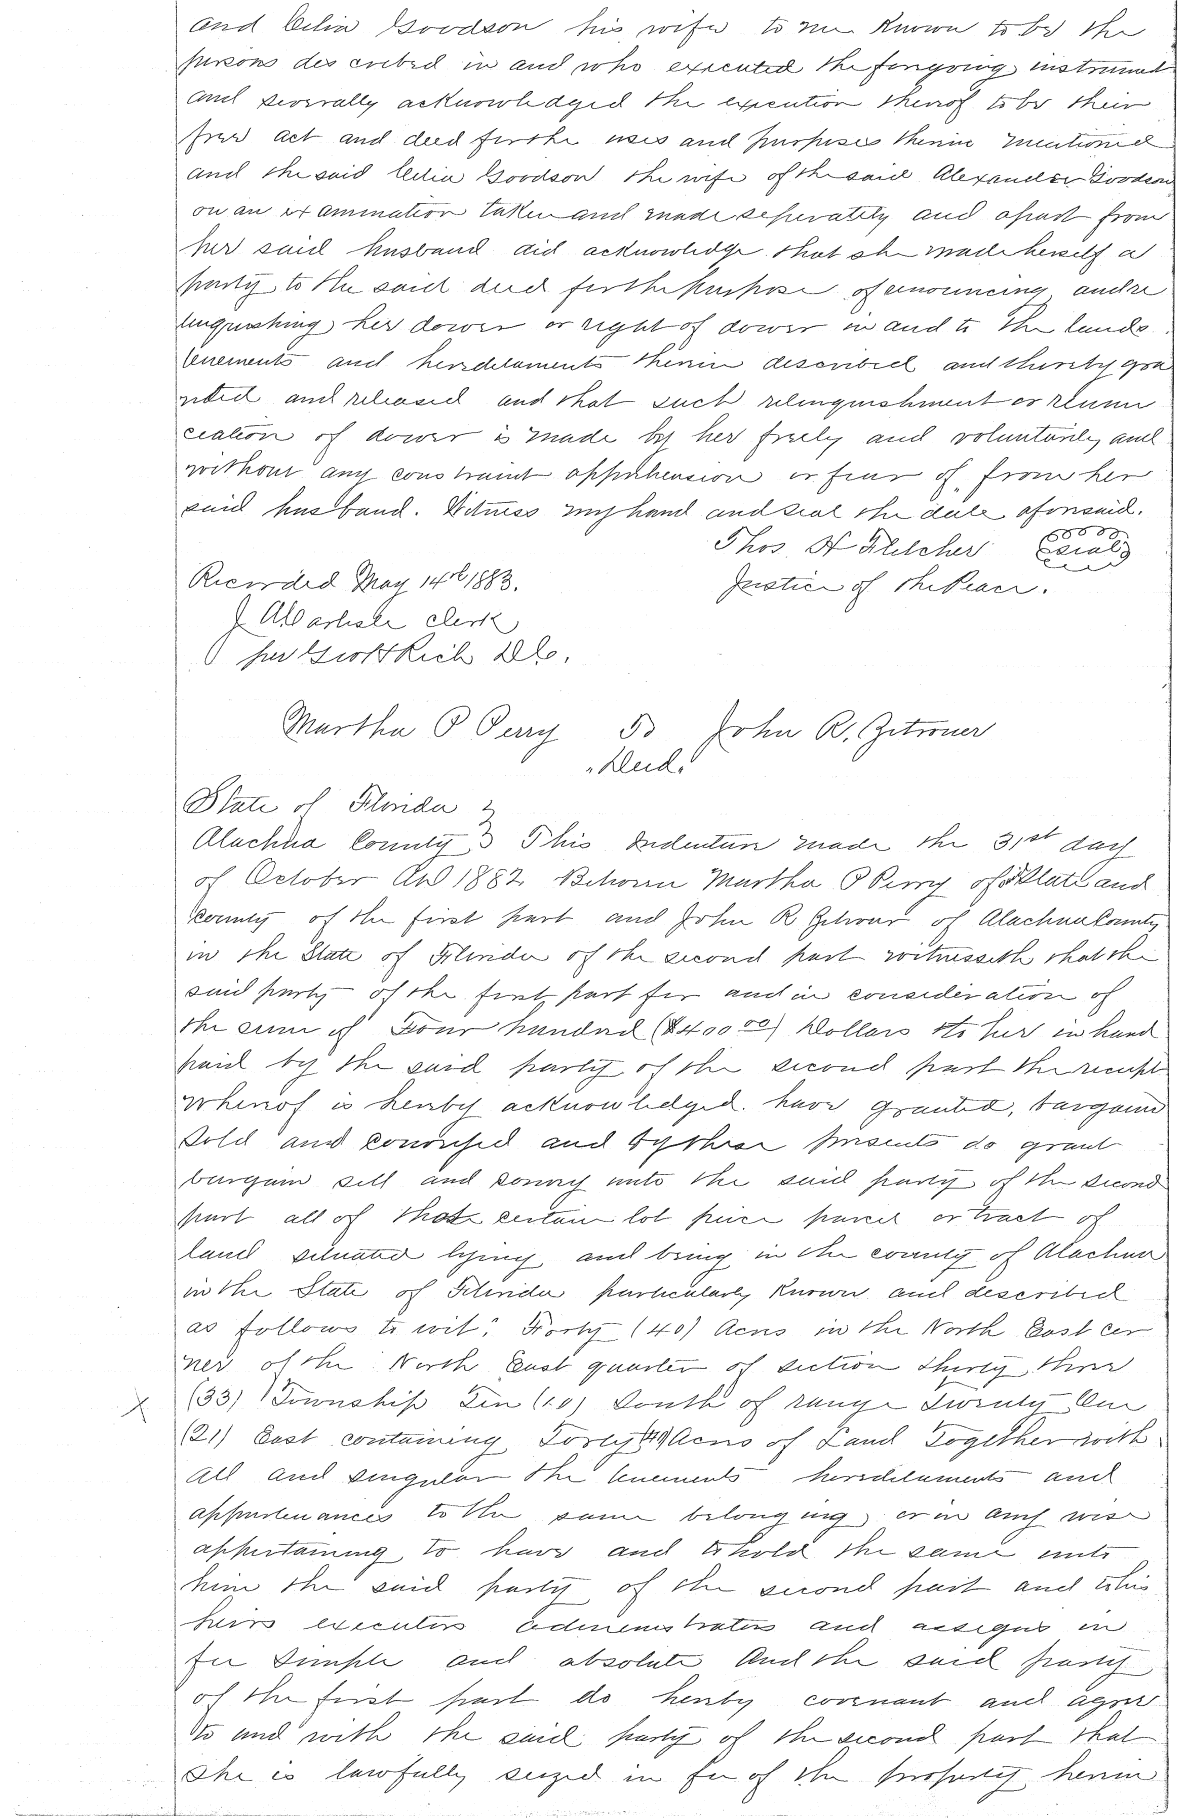 and Celia Goodson his wife to me known to be the
persons described in and who executed the foregoing instrument
and severally acknowledged the execution thereof to be their
free act and deed for the uses and purposes therein mentioned
and the said Celia Goodson the wife of the said Alexander Goodson
on an examination taken and made seperately and apart from
her said husband did acknowledge that she made herself a
party to the said deed for the purpose of renouncing and re
linquishing her dower or right of dower in and to the lands
tenements and heredetaments therein described and thereby gra
nted and released and that such relinquishment or renun
ciation of dower is made by her freely and voluntarily and
without any constraint apprehension or fear of from her
said husband. Witness my hand and seal the date aforesaid.
Thos H Fletcher seal
Recorded May 14th 1883. Justice of the Peace.
J A Carlisle clerk
per Rich D.C.
Martha P Perry To John R. Zetrouer
"Deed"
State of Florida
Alachua County } This Indenture made the 31st day
of October AD 1882 Between Martha P Perry of State and
county of the first part and John R Zetrouer of Alachua County
in the State of Florida of the second part witnesseth that the
said party of the first part for and in consideration of
the sum of Four hundred ($400 00) Dollars to her in hand
paid by the said party of the second part the receipt
whereof is hereby acknowledged. have granted, bargained
sold and conveyed and by these presents do grant
bargain sell and convey unto the said party of the second
part all of that certain lot piece parcel or tract of
land situated lying and being in the county of Alachua
in the State of Florida particularly known and described
as follows to wit: Forty (40) Acres in the North East cor
ner of the North East quarter of section thirty three
(33) Township Ten (10) South of range Twenty One
(21) East containing Forty (40) Acres of Land Together with
all and singular the tenements heredetaments and
appurtenances to the same belonging or in any wise
appertaining to have and to hold the same unto
him the said party of the second part and to his
heirs executors administrators and assigns in
fee simple and absolute And the said party
of the first part do hereby covenant and agree
to and with the said party of the second part that
she is lawfully seized in fee of the property herein